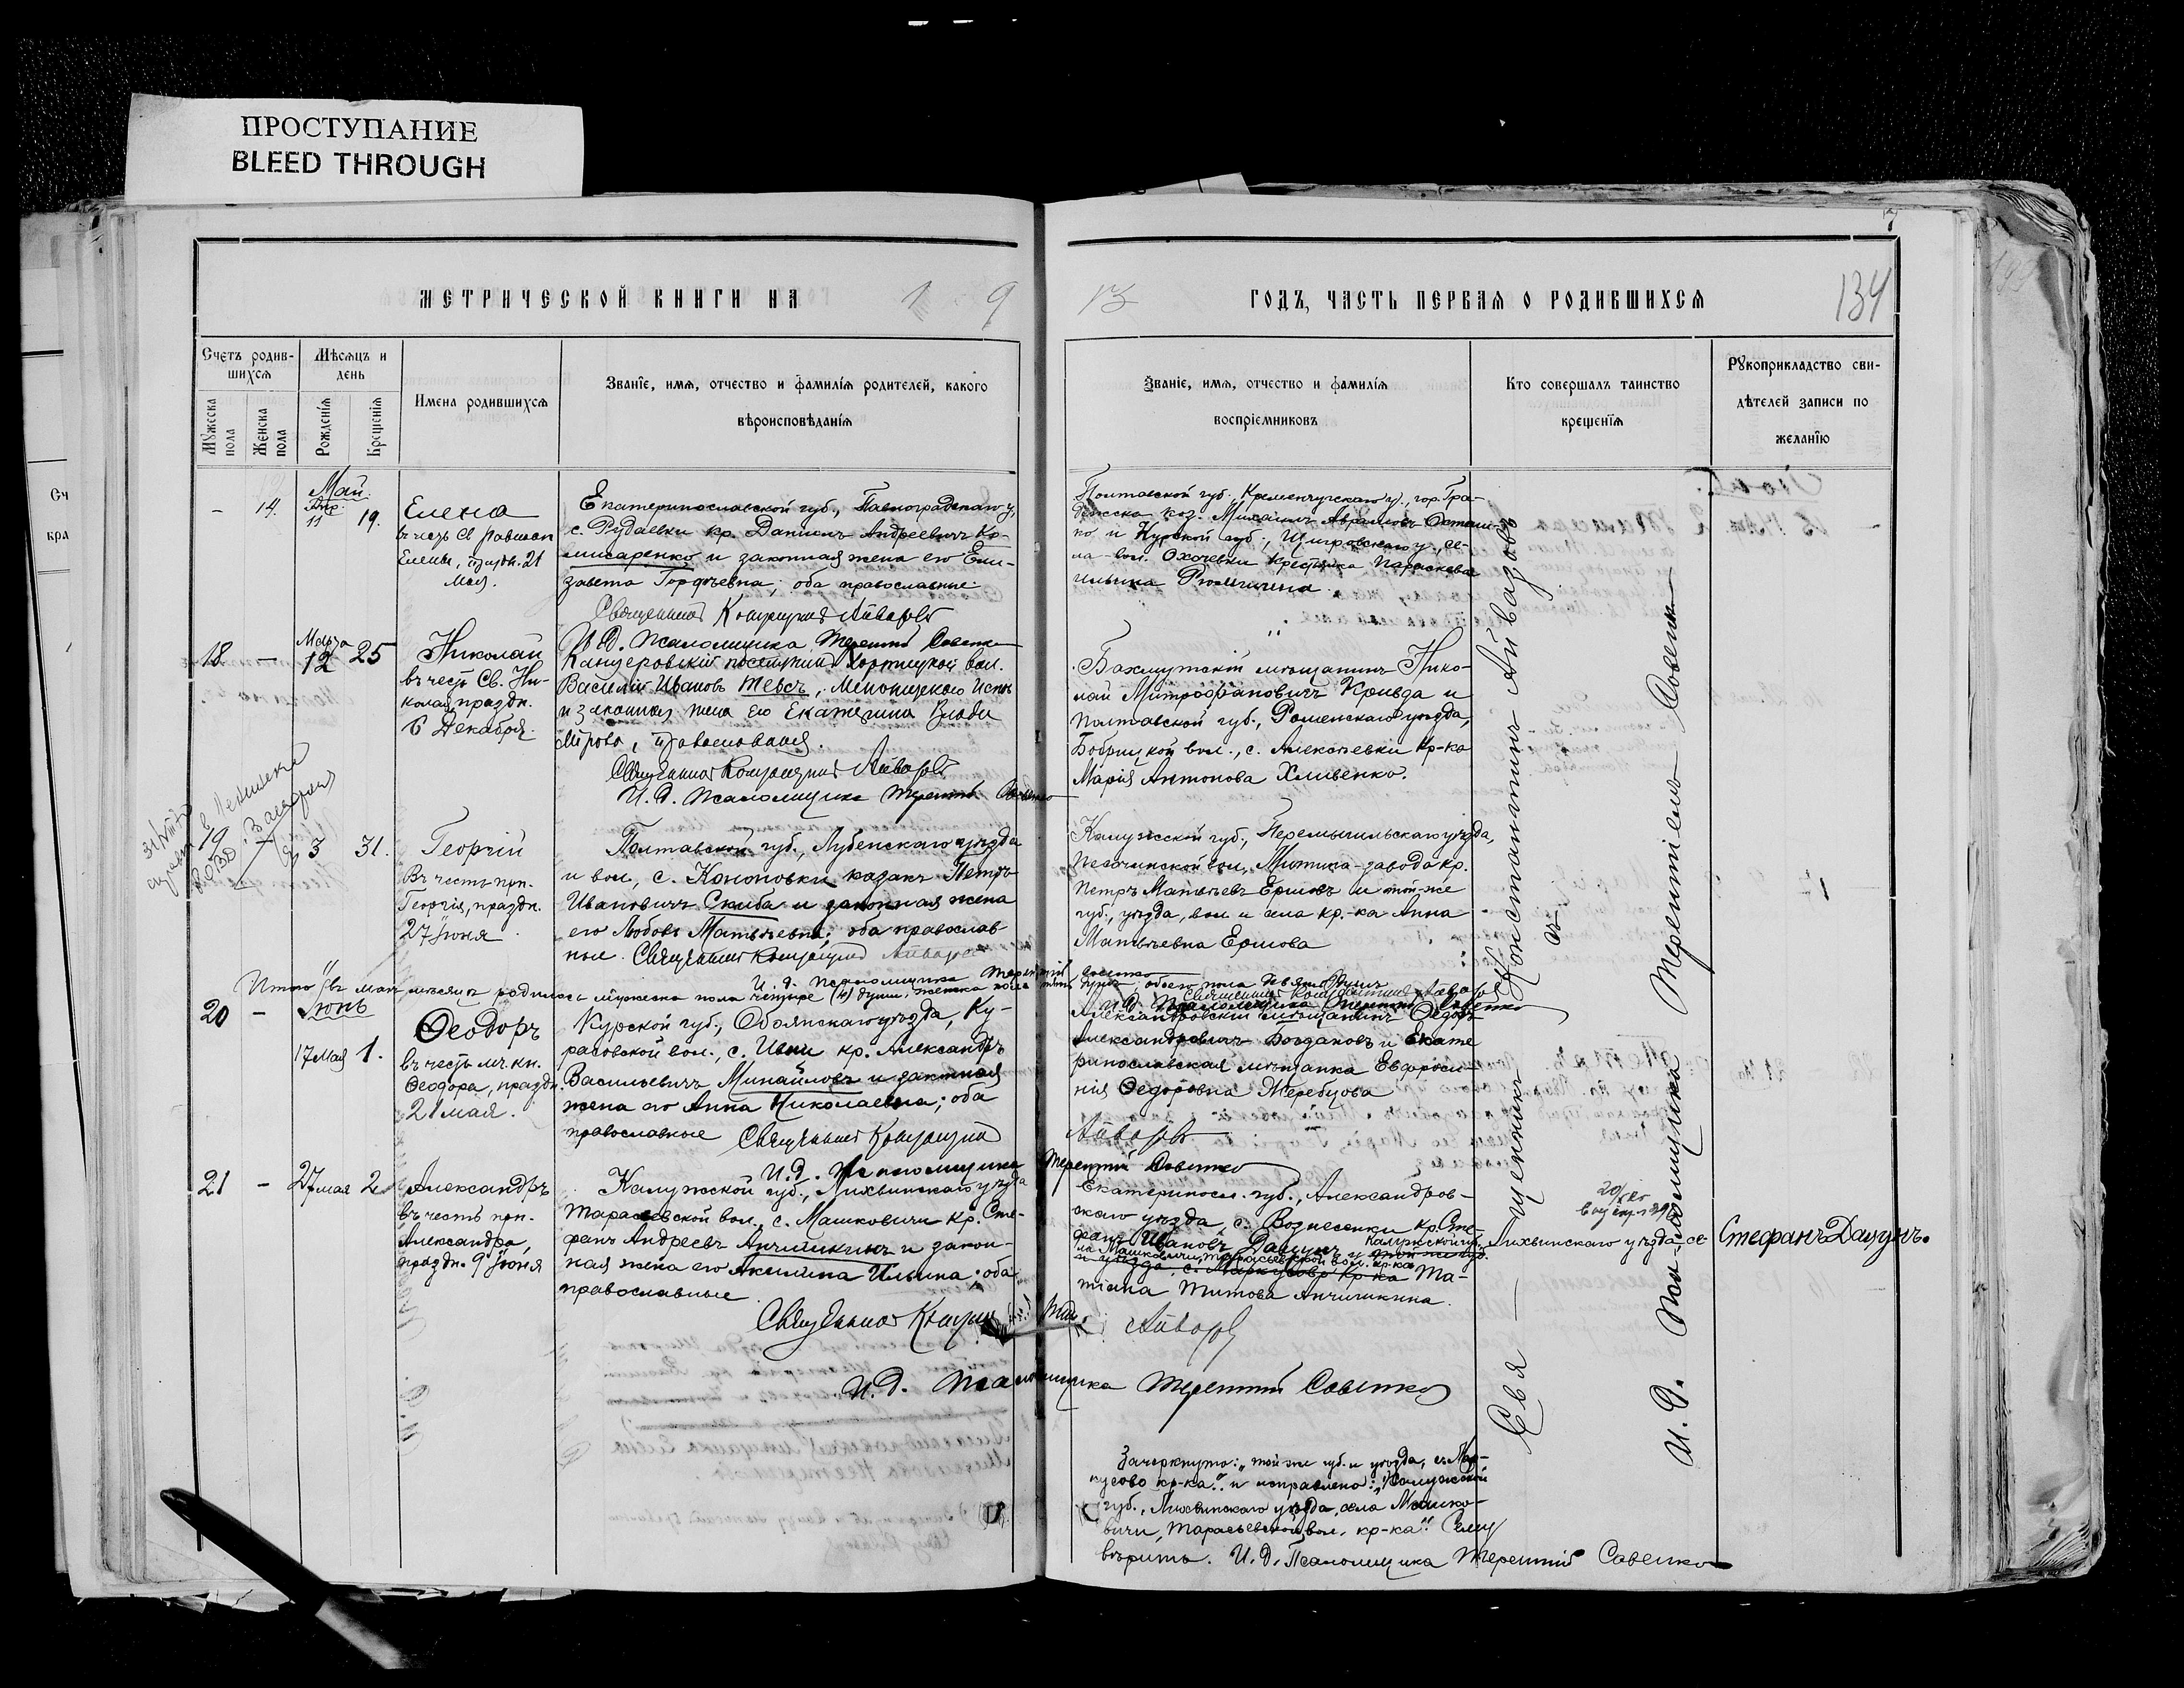 ПРОСТУПАНИЕ
BLEED THROUGH
МЕТРИЧЕСКОЙ КНИГИ НА 19
13 ГОДЪ, ЧАСТЬ ПЕРВАЯ О РОДИВШИХСЯ
134
Счетъ родив-
шихся
Мужеска
пола
Женска
пола
Мѣсяцъ и
день
Рожденія
Крещенія
Имена родившихся
Званіе, имя, отчество и фамилія родителей, какого
вѣроисповѣданія
Званіе, имя, отчество и фамилія
воспріемниковъ
Кто совершалъ таинство
крещенія
Рукоприкладство сви-
дѣтелей записи по
желанію
- 14.
Май.
Апр.
11
19.
Елена
въ честь св
Елены, праздн. 21
Мая.
Екатеринославской губ., Павлоградскаго у,
с. Рудаевки кр. Даніилъ Андреевичъ Ко-
мисаренко и законная жена его Ели-
завета Гордѣевна; оба православные.
Священникъ Константинъ Айвазовъ
И. Д. Псаломщика Терентій Савенко
Полтавской губ., Кременчугскаго у., гор. Гра-
дижска коз. Михаилъ Аврамовъ
ко и Курской губ., Щигровскаго у., се-
ла-вол. Охочевки крестьянка Параскева
Ильина
18 -
Марта
12 25
Николай
въ честь Св. Ни-
колая праздн.
6 Декабря.
Канцеровскій поселянинъ Хортицкой вол.
Василій Ивановъ Тевсъ, Менонитскаго испов
и законная жена его Екатерина Влади
мірова, православная.
Священникъ Константинъ Айвазовъ
И. Д. Псаломщика Терентій Савенко
Бахмутскій мѣщанинъ Нико-
лай Митрофановичъ Кривда и
Полтавской губ., Роменскаго уѣзда,
Бобрицкой вол., с. Алексѣевки кр-ка
Марія Антонова Хливенко.
19 - 3 31.
Георгій
Въ честь прп.
Георгія, праздн.
27 Іюня
Полтавской губ., Лубенскаго уѣзда
и вол., с. Кононовки казакъ Петръ
Ивановичъ Скиба и законная жена
его Любовь Матвѣевна; оба православ
ные. Священникъ Константинъ Айвазовъ
И. д. псаломщика Терентій Савенко
Калужской губ., Перемышльскаго уѣзда,
Песоченской вол., Мытина-завода кр.
Петръ Матвѣевъ Ершовъ и той-же
губ., уѣзда, вол и села кр.-ка Анна
Матвѣевна Ершова
Итого въ маѣ мѣсяцѣ родилось мужеска пола четыре (4) души, женска пола пять душъ, обоего пола девять душъ
Священникъ Константинъ Айвазовъ
И. Д. Псаломщика Терентій Савенко
20 -
Іюнь
17 мая 1.
Ѳеодоръ
въ честь мч. кн.
Ѳеодора, праздн.
21 мая.
Курской губ., Обоянскаго уѣзда, Ку-
расовской вол., с. Ивни кр. Александръ
Васильевичъ Михайловъ и законная
жена его Анна Николаевна; оба
православные Священникъ Константинъ Айвазовъ
И. Д. Псаломщика Терентій Савенко
Александровскій мѣщанинъ Ѳедоръ
Александровичъ Богдановъ и Екате
ринославская мѣщанка Евфроси-
нія Ѳедоровна Жеребцова
21 - 27 мая 2
Александръ
въ честь прп.
Александра,
праздн. 9 Іюня
Калужской губ., Лихвинскаго уѣзда
Тарасьевской вол., с. Машковичи кр. Сте-
фанъ Андреевъ Анчишкинъ и закон-
ная жена его Акилина Ильина; оба
православные
Священникъ Константинъ Айвазовъ
И. Д. Псаломщика Терентій Савенко
Екатеринос. губ., Александров-
скаго уѣзда, с. Вознесенки кр. Сте-
фанъ Ивановъ Дацунъ и той же губ.
Калужской губ. Лихвинскаго уѣзда, се-
ла Машковичи, Тарасьевской вол. кр-ка
и уѣзда, с. Маркусово кр-ка Та-
тіана Титова Анчишкина.
Священникъ Константинъ Айвазовъ
И. Д. Псаломщика Терентіевъ Савенко
Стефанъ Дацунъ.
Зачеркнуто: „той же губ. и уѣзда, с. Мар-
кусово кр-ка." и исправлено: „Калужской
губ., Лихвинскаго уѣзда, села Машко-
вичи, Тарасьевской вол. кр-ка". Сему
вѣрить. И. Д. Псаломщика Терентій Савенко